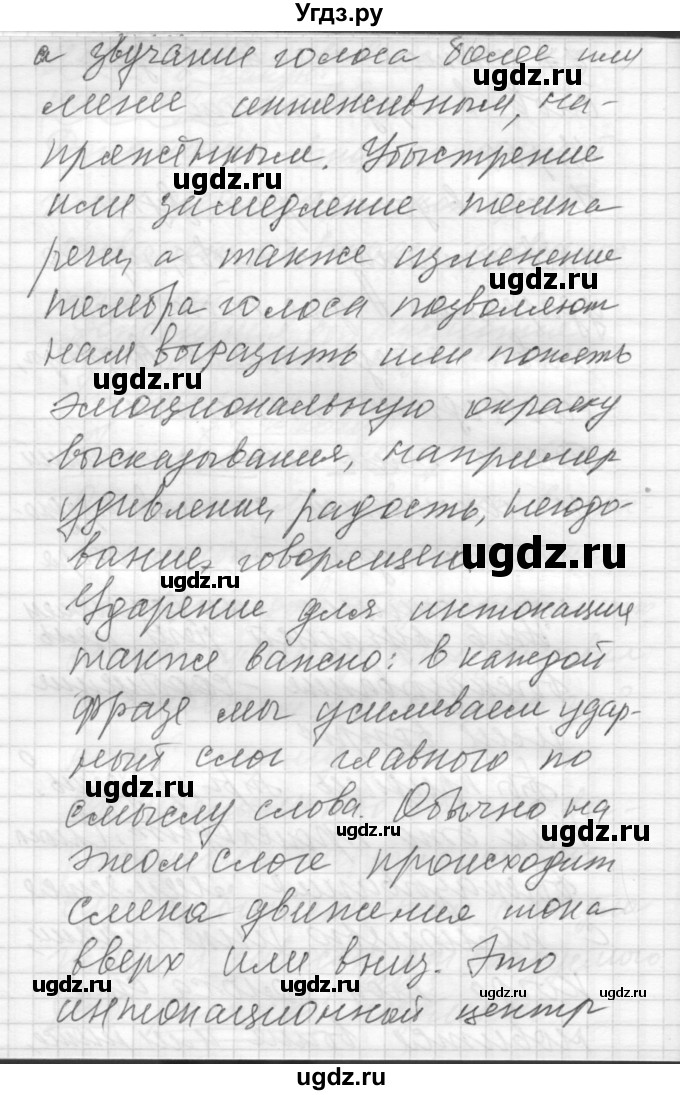 Угдз.ру
а звучание голоса более или
ugdz.ru
менее интенсивным, на-
пряжённым. Убыстрение
ugdz.ru
или замедление темпа
речи, а также изменение
ugdz.ru
тембра голоса позволяют
нам выразить или понять
ugdz.ru
эмоциональную окраску
высказывания, например
удивление, радость, негодо-
вание, говорящего.
ugdz.ru
ugdz.ru
Ударение для интонации
также важно: в каждой
фразе мы усиливаем удар-
ный слог главного по
ugdz.ru
смыслу слова. Обычно на
ugdz.ru ugdz.ru
этом слоге происходит
смена движения тона
вверх или вниз. Это
ugdz.ru ugdz.ru ugdz.ru ugdz.ru
интонационной центр
ugdz.ru